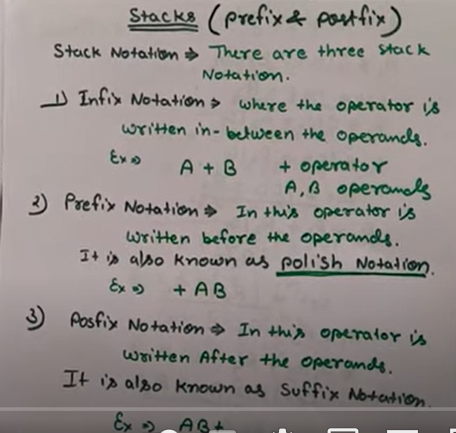 Stacks (prefix & postfix)
Stack Notation ⇒ There are three stack
Notation.
1) Infix Notation ⇒ where the operator is
written in-between the operands.
Ex ⇒ A + B + operator
A, B operands
2) Prefix Notation ⇒ In this operator is
written before the operands.
It is also known as polish Notation.
Ex ⇒ + AB
3) Posfix Notation ⇒ In this operator is
written After the operands.
It is also known as Suffix Notation.
Ex ⇒ AB+